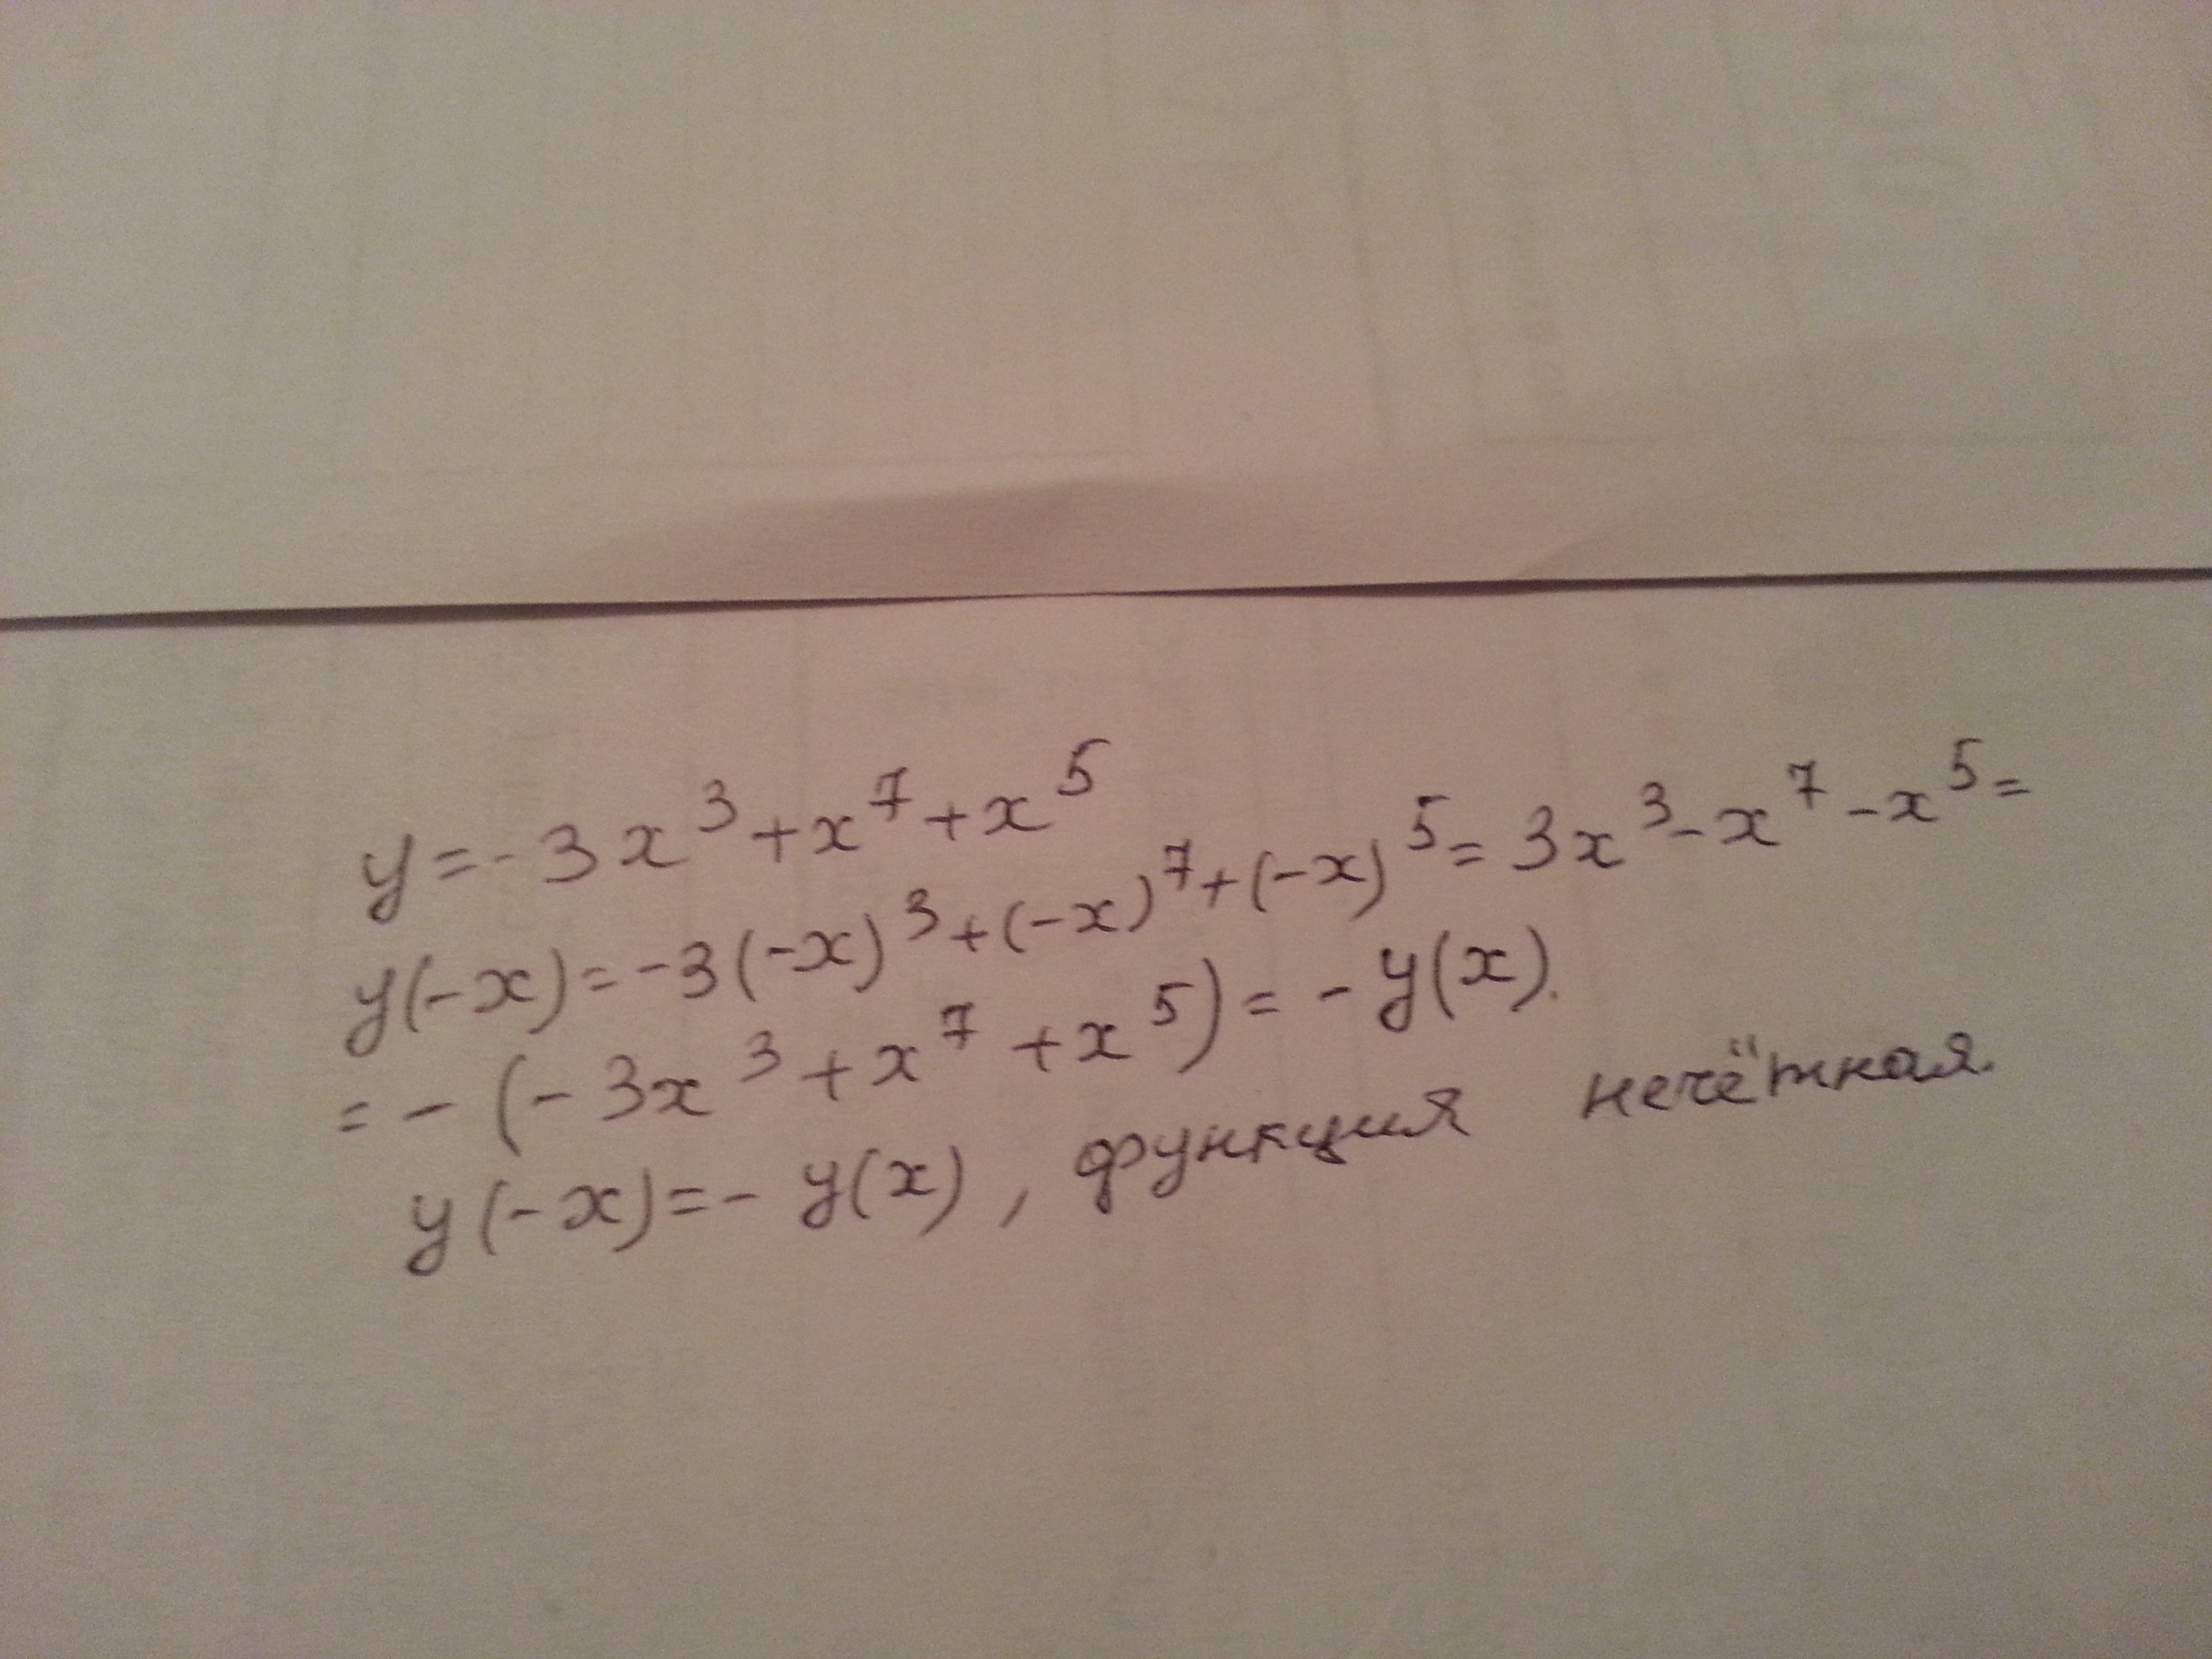 y=-3x³+x⁷+x⁵
y(-x)=-3(-x)³+(-x)⁷+(-x)⁵=3x³-x⁷-x⁵=
=-(-3x³+x⁷+x⁵)=-y(x).
y(-x)=-y(x), функция нечётная.